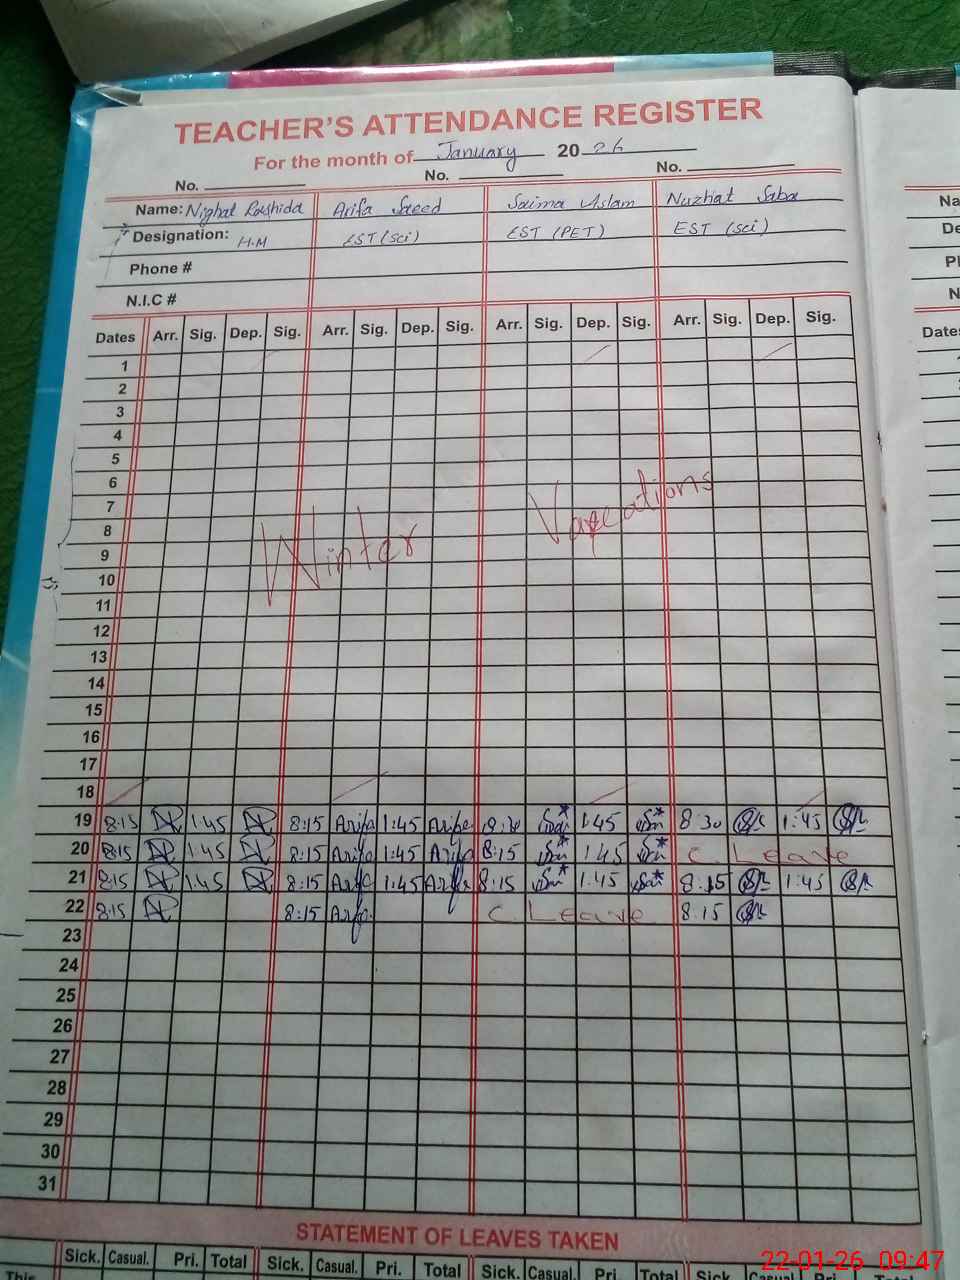 TEACHER'S ATTENDANCE REGISTER
For the month of January 2026
No. No. No.
Name: Nighat Rashida Arifa Saeed Saima Aslam Nuzhat Saba
Designation: H.M EST (Sci) EST (PET) EST (Sci)
Phone #
N.I.C #
Dates Arr. Sig. Dep. Sig. Arr. Sig. Dep. Sig. Arr. Sig. Dep. Sig. Arr. Sig. Dep. Sig.
1
2
3
4
5
6
7
8
9
10
11
12
13
14
15
16
17
18
Winter Vaccations
19 8:15 1:45 8:15 Arifa 1:45 Arifa 8:30 1:45 8:30 1:45
20 8:15 1:45 8:15 Arifa 1:45 Arifa 8:15 1:45 C. Leave
21 8:15 1:45 8:15 Arifa 1:45 Arifa 8:15 1:45 8:15 1:45
22 8:15 8:15 Arifa C. Leave 8:15
23
24
25
26
27
28
29
30
31
STATEMENT OF LEAVES TAKEN
Sick. Casual. Pri. Total Sick. Casual. Pri. Total Sick. Casual. Pri. Total Sick. Casual. Pri.
This
Na
De
Ph
N
Dates
22-01-26 09:47